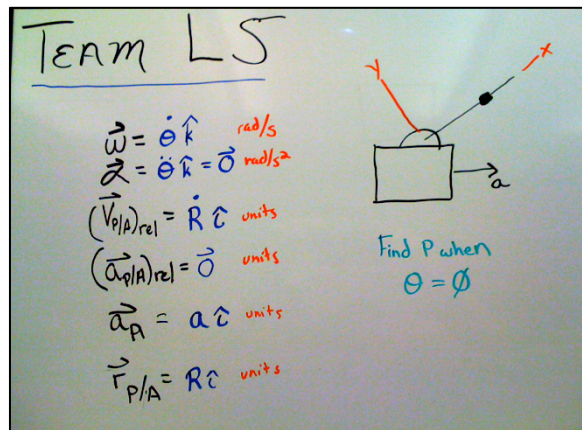 TEAM LS
ω⃗ = θ̇ k̂ rad/s
α⃗ = θ̈ k̂ = 0⃗ rad/s²
(v⃗P/A)rel = Ṙ î units
(a⃗P/A)rel = 0⃗ units
a⃗A = a î units
r⃗P/A = R î units
y
x
a
Find P when
θ = ∅